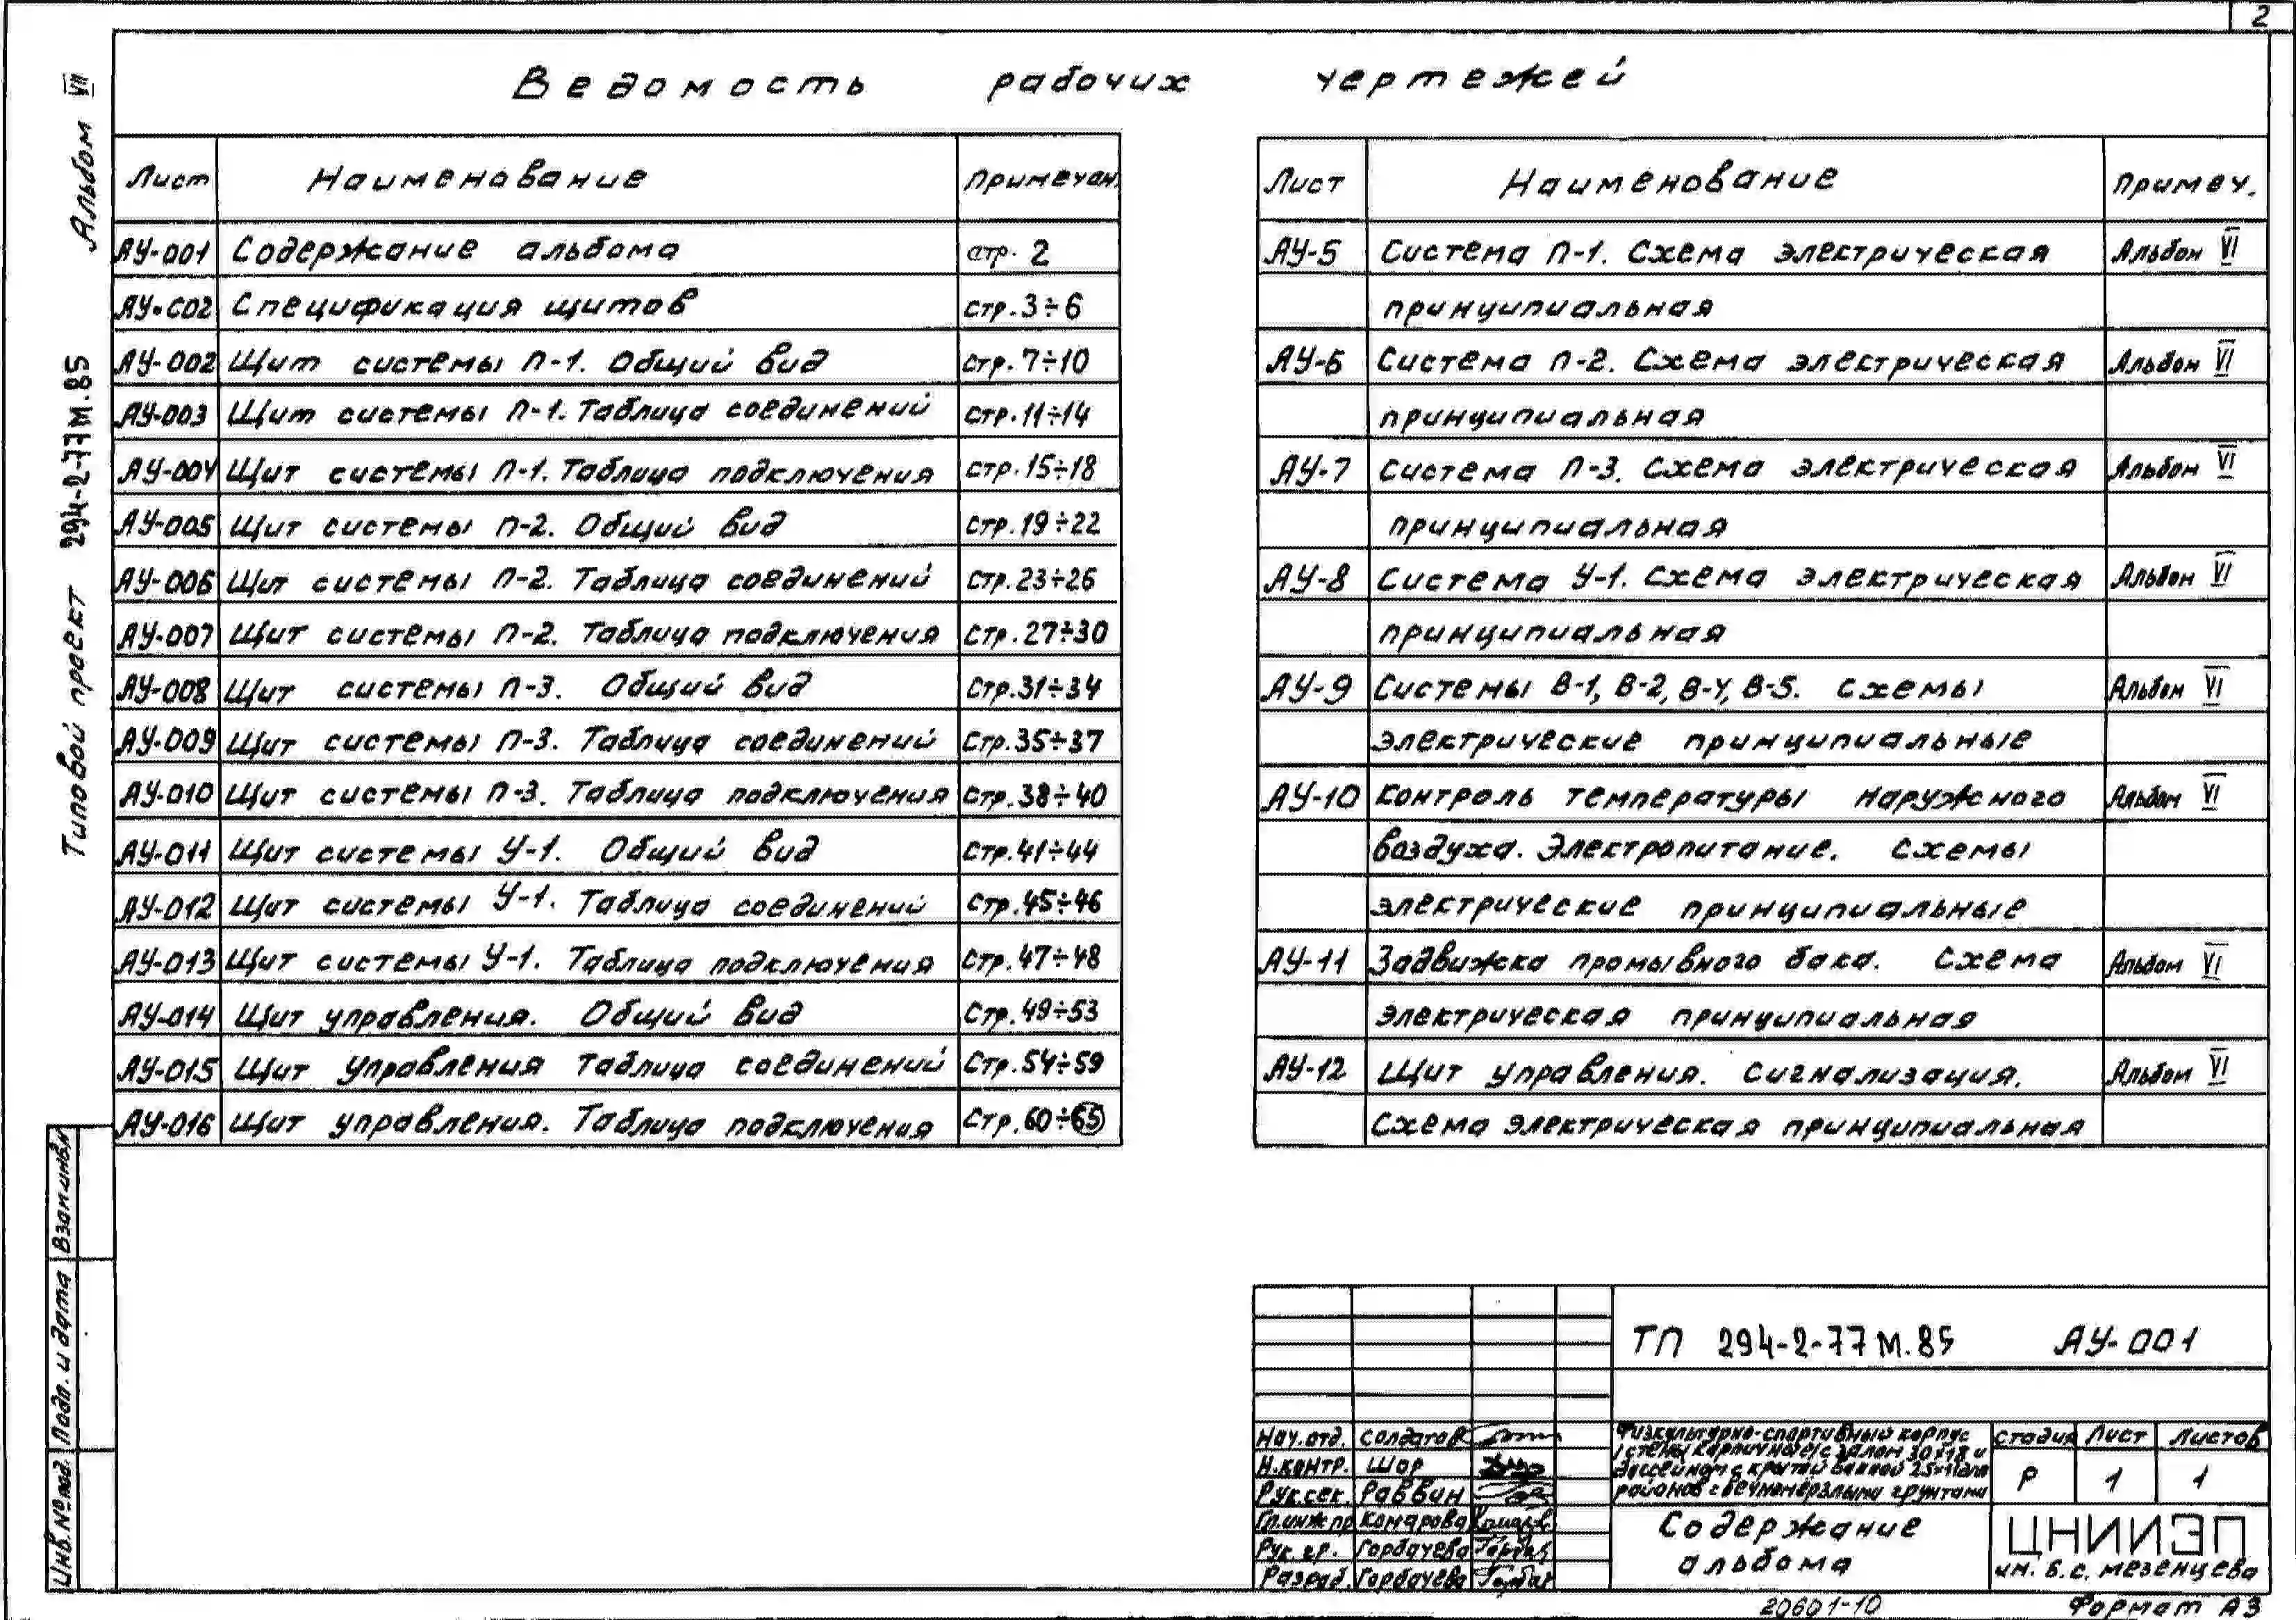 2
Ведомость рабочих чертежей
Альбом VII
Типовой проект 294-2-77м.85
Лист Наименование Примечан.
АУ-001 Содержание альбома стр. 2
АУ-С02 Спецификация щитов стр. 3÷6
АУ-002 Щит системы П-1. Общий вид стр. 7÷10
АУ-003 Щит системы П-1. Таблица соединений стр. 11÷14
АУ-004 Щит системы П-1. Таблица подключения стр. 15÷18
АУ-005 Щит системы П-2. Общий вид стр. 19÷22
АУ-006 Щит системы П-2. Таблица соединений стр. 23÷26
АУ-007 Щит системы П-2. Таблица подключения стр. 27÷30
АУ-008 Щит системы П-3. Общий вид стр. 31÷34
АУ-009 Щит системы П-3. Таблица соединений стр. 35÷37
АУ-010 Щит системы П-3. Таблица подключения стр. 38÷40
АУ-011 Щит системы У-1. Общий вид стр. 41÷44
АУ-012 Щит системы У-1. Таблица соединений стр. 45÷46
АУ-013 Щит системы У-1. Таблица подключения стр. 47÷48
АУ-014 Щит управления. Общий вид стр. 49÷53
АУ-015 Щит управления Таблица соединений стр. 54÷59
АУ-016 Щит управления. Таблица подключения стр. 60÷65
Лист Наименование Примеч.
АУ-5 Система П-1. Схема электрическая Альбом VI
принципиальная
АУ-6 Система П-2. Схема электрическая Альбом VI
принципиальная
АУ-7 Система П-3. Схема электрическая Альбом VI
принципиальная
АУ-8 Система У-1. Схема электрическая Альбом VI
принципиальная
АУ-9 Системы В-1, В-2, В-4, В-5. Схемы Альбом VI
электрические принципиальные
АУ-10 Контроль температуры наружного Альбом VI
воздуха. Электропитание. Схемы
электрические принципиальные
АУ-11 Задвижка промывного бака. Схема Альбом VI
электрическая принципиальная
АУ-12 Щит управления. Сигнализация. Альбом VI
Схема электрическая принципиальная
Взам.инв.№
Подп. и дата
Инв.№ под.
ТП 294-2-77м.85 АУ-001
Нач.отд. Солдатов
Н.контр. Шор
Рук.сек. Раввин
Гл.инж.пр Комарова
Рук. гр. Горбачева
Разраб. Горбачева
Физкультурно-спортивный корпус
(стены кирпичные) с залом 30х18 и
бассейном с крытой ванной 25х11 для
районов с вечномерзлыми грунтами
Стадия Лист Листов
Р 1 1
Содержание
альбома
ЦНИИЭП
им. Б.С. Мезенцева
20601-10 Формат А3